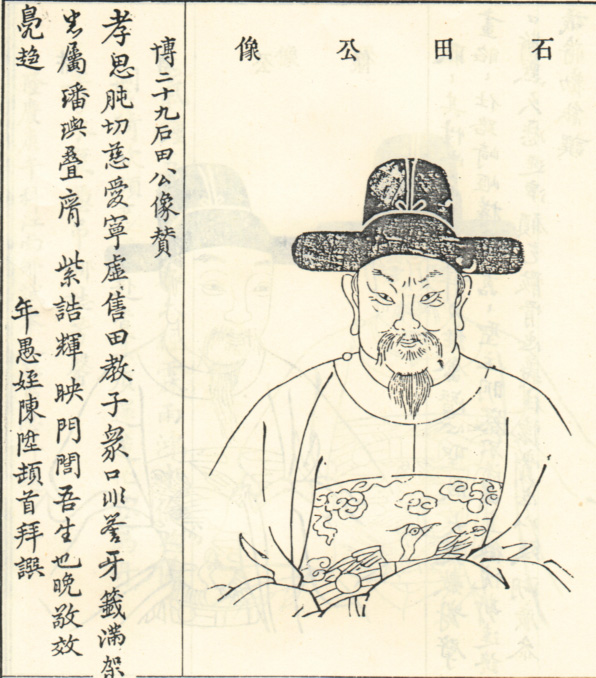 石田公像
博二十九石田公像贊
孝思肫切慈愛寧虛售田教子衆口
牙籤滿架
屬璠璵疊膺　紫誥輝映門閭吾生也晚敬效
亮趋
年愚姪陳陞頓首拜譔